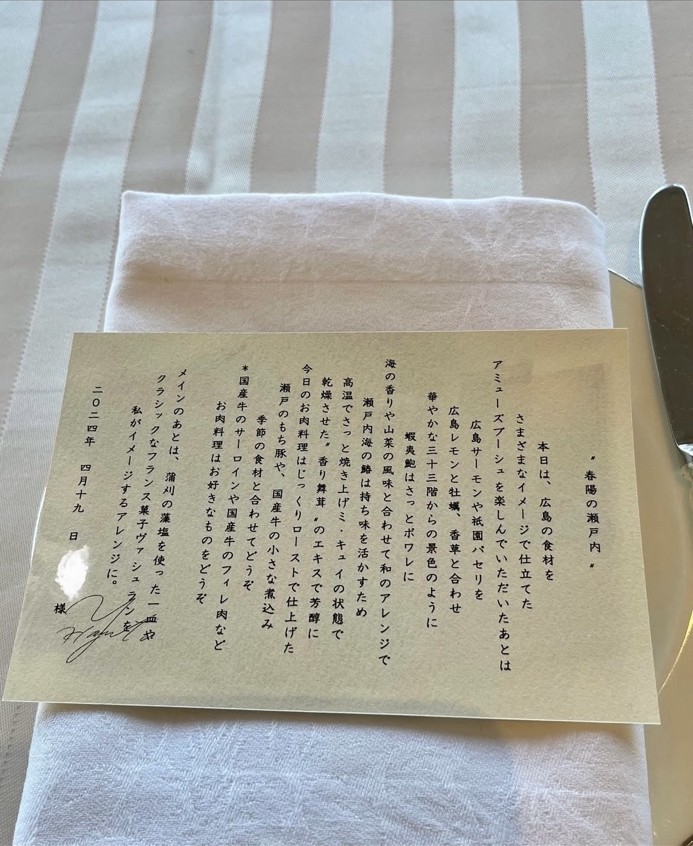 〝春陽の瀬戸内〟
本日は、広島の食材を
さまざまなイメージで仕立てた
アミューズブーシュを楽しんでいただいたあとは
広島サーモンや祇園パセリを
広島レモンと牡蠣、香草と合わせ
華やかな三十三階からの景色のように
蝦夷鮑はさっとポワレに
海の香りや山菜の風味と合わせて和のアレンジで
瀬戸内海の鰆は持ち味を活かすため
高温でさっと焼き上げミ・キュイの状態で
乾燥させた〝香り舞茸〟のエキスで芳醇に
今日のお肉料理はじっくりローストで仕上げた
瀬戸のもち豚や、国産牛の小さな煮込み
季節の食材と合わせてどうぞ
*国産牛のサーロインや国産牛のフィレ肉など
お肉料理はお好きなものをどうぞ
メインのあとは、蒲刈の藻塩を使った一皿や
クラシックなフランス菓子ヴァシュランを
私がイメージするアレンジに。
二〇二四年 四月十九日
様